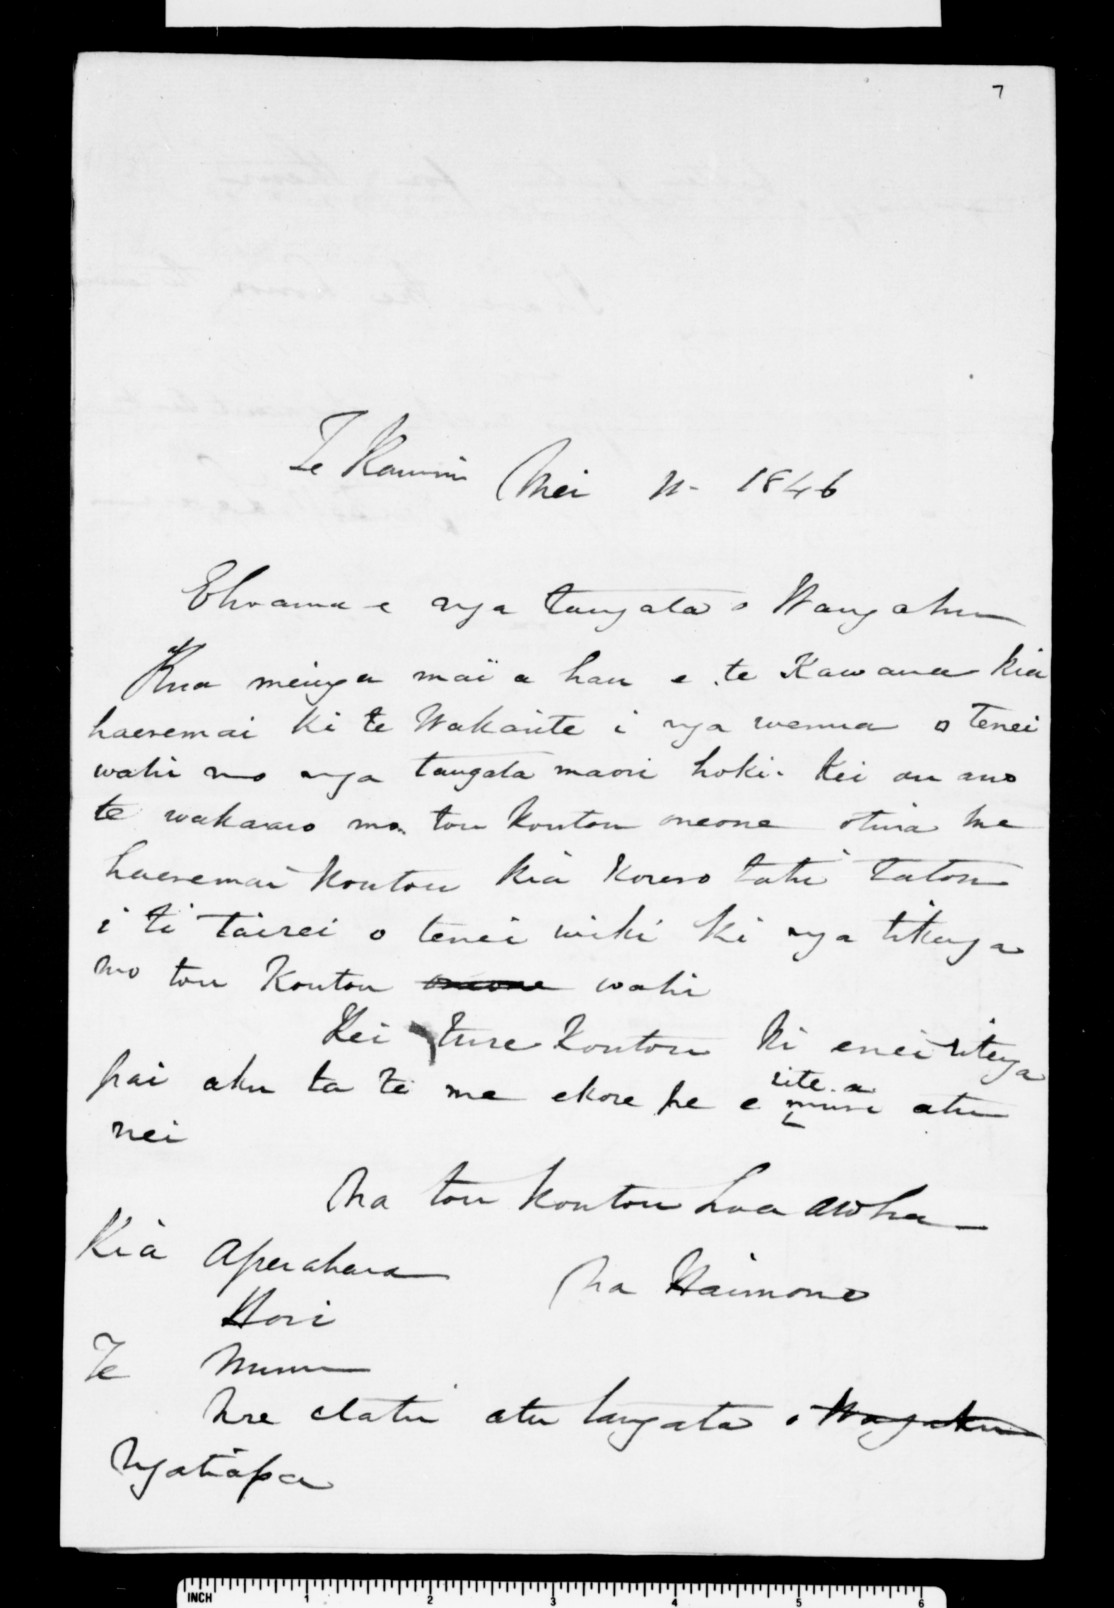 7
Te Kawini Mei 11- 1846
Ehoama e nga tangata o Wangaehu
Kua meinga mai a hau e te Kawana kia
haeremai ki te Wakarite i nga wenua o tenei
wahi mo nga tangata maori hoki. Kei au ano
te wakaaro mo tou koutou oneone otira me
haeremai koutou kia korero tahi tatou
i ti tairei o tenei wiki ki nga tikanga
mo tou koutou oneone wahi
Kei ture koutou ki enei ritenga
pai aku ta te me ekore pe e rite a muri atu
nei
Na tou koutou hoa aroha
Kia Aperahama
Na Haimona
Hori
Te
me etahi atu tangata o Wangaehu
Ngatiapa
INCH 1 2 3 4 5 6